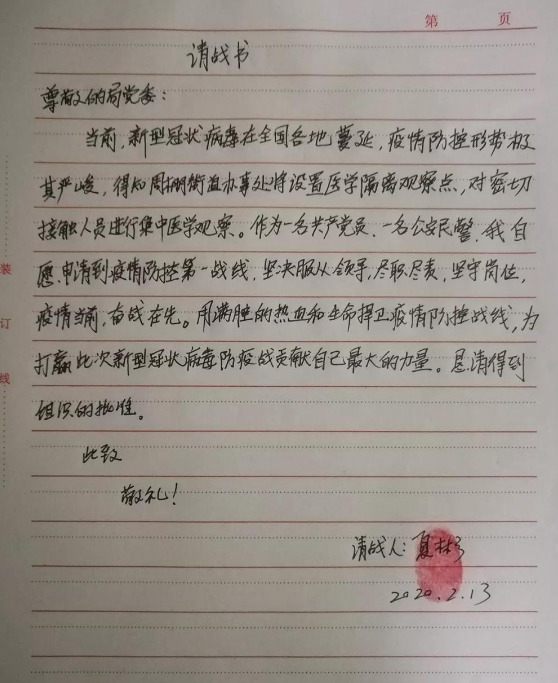 第 页
请战书
尊敬的局党委：
当前，新型冠状病毒在全国各地蔓延，疫情防控形势极
其严峻，得知周棚街道办事处将设置医学隔离观察点，对密切
接触人员进行集中医学观察。作为一名共产党员、一名公安民警，我自
愿申请到疫情防控第一战线，坚决服从领导，尽职尽责，坚守岗位，
疫情当前，奋战在先。用满腔的热血和生命捍卫疫情防控战线，为
打赢此次新型冠状病毒防疫战贡献自己最大的力量。恳请得到
组织的批准。
此致
敬礼！
请战人：夏彬
2020.2.13
装
订
线